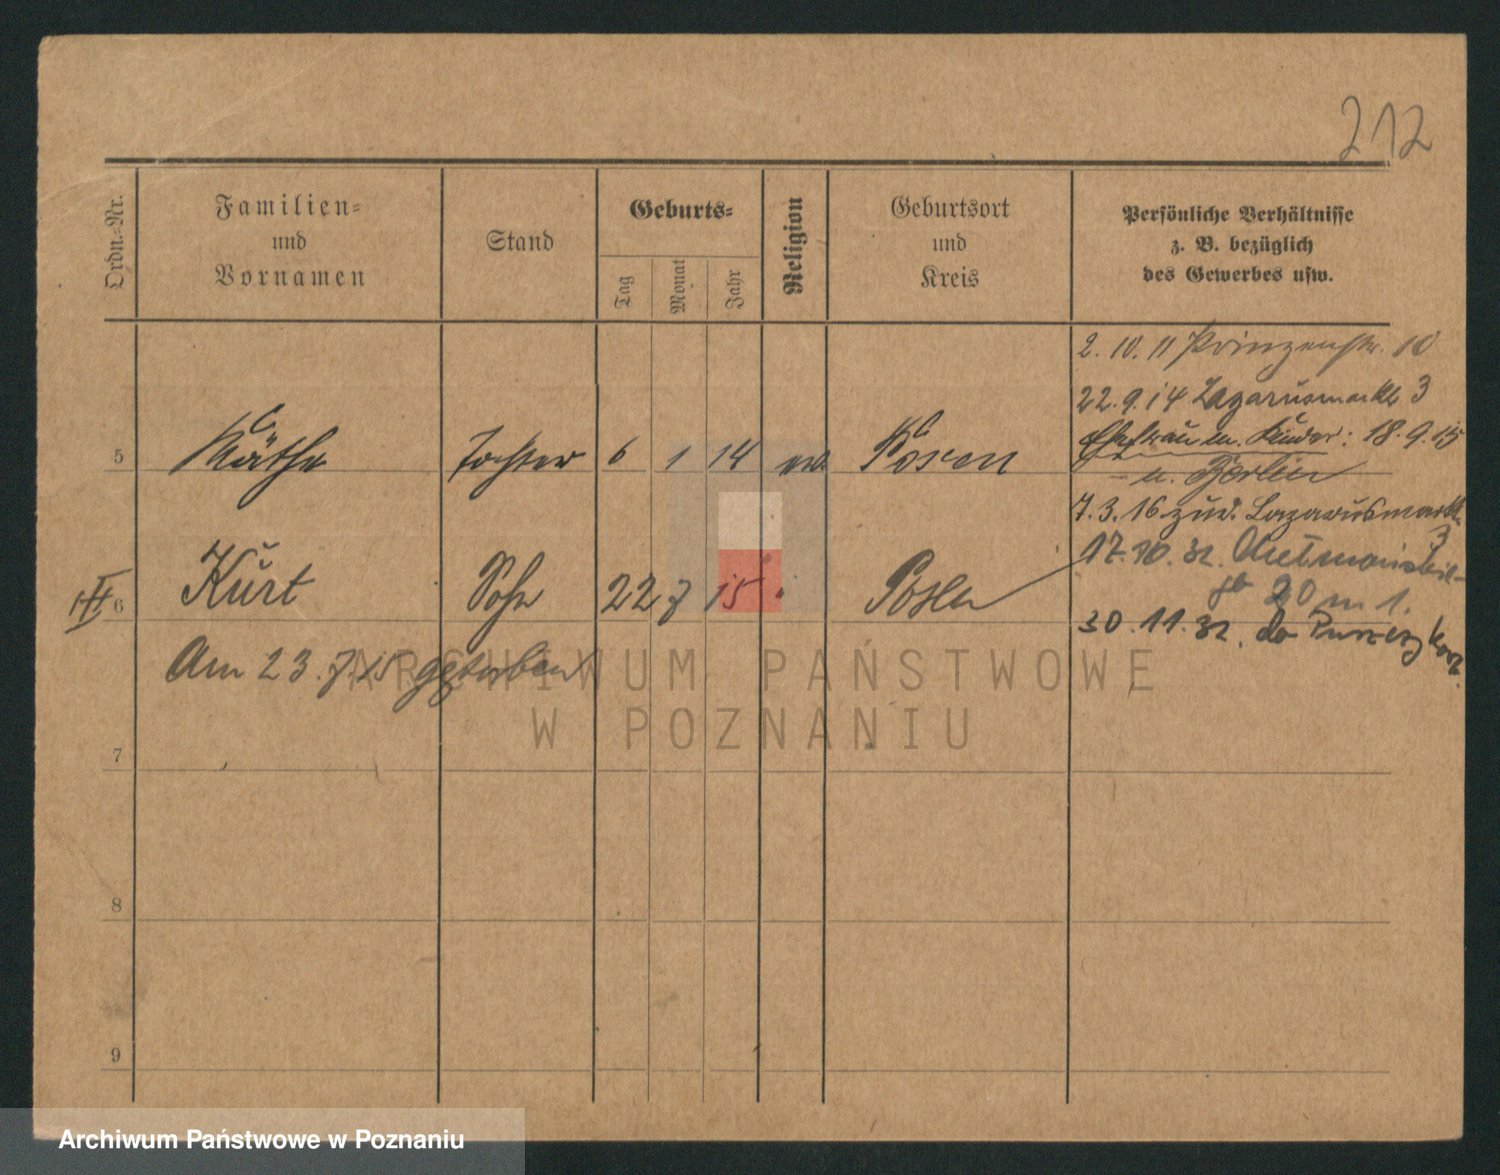 212
Ordn.-Nr.
Familien-
und
Vornamen
Stand
Geburts-
Tag
Monat
Jahr
Religion
Geburtsort
und
Kreis
Persönliche Verhältnisse
z. B. bezüglich
des Gewerbes usw.
2. 10. 11 Prinzenstr. 10
22. 9. 14 Lazarusmarkt 3
5 Käthe Tochter 6 1 14 Posen
Ehefrau u. Kinder: 18. 9. 15
n. Berlin
7. 3. 16 zur. Lazarusmarkt
3
17. 10. 32.
20 m 1.
6 Kurt Sohn 22 7 15 Posen
30. 11. 32. do
Am 23. 7. 15 gestorben
7
8
9
ARCHIWUM PAŃSTWOWE
W POZNANIU
Archiwum Państwowe w Poznaniu